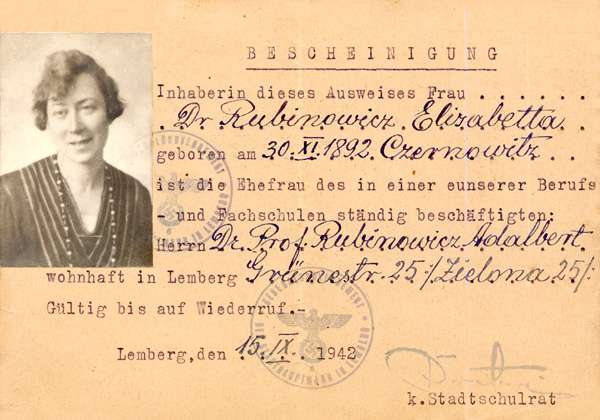 BESCHEINIGUNG
Inhaberin dieses Ausweises Frau . . . . . .
Dr Rubinowicz Elizabetta
geboren am 30. XI. 1892 Czernowitz . .
ist die Ehefrau des in einer eunserer Berufs
- und Fachschulen ständig beschäftigten:
Herrn Dr. Prof. Rubinowicz Adalbert
wohnhaft in Lemberg Grünestr. 25 :/ Zielona 25/:
Gültig bis auf Wiederruf.-
Lemberg, den 15. IX. 1942
k. Stadtschulrat